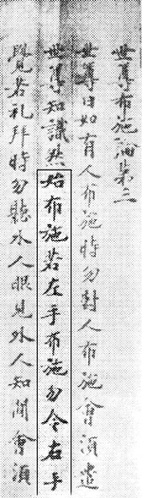 世尊布施論第三
世尊曰如有人布施時勿對人布施會須遣
世尊知識然始布施若左手布施勿令右手
覺若礼拜時勿聽外人眼見外人知聞會須